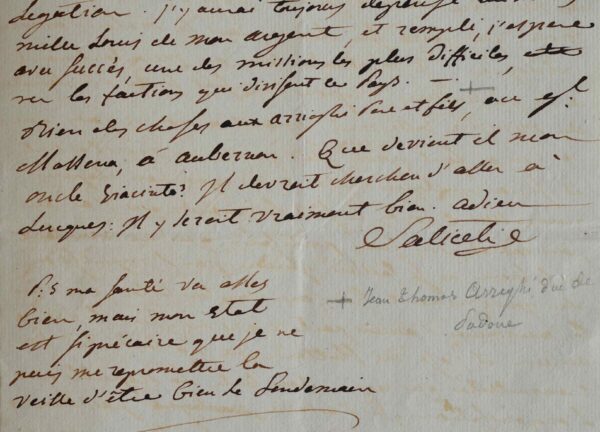 legation. j'y aurai toujours dépensé
mille Louis de mon argent, et rempli, j'espere
avec succès, une des missions les plus difficiles,
vu les factions qui divisent ce Pays. — +
Bien des choses aux arrighi Pere et fils, au gl.
Massena, à aubernon. Que devient il mon
oncle Giacinto? Il devroit chercher d'aller à
Lucques: Il y seroit vraiment bien. adieu
Saliceti
P:S ma santé va assez
bien, mais mon Etat
est si précaire que je ne
puis me repromettre la
veille d'être bien le Lendemain
+ Jean Thomas Arrighi duc de
Padoue